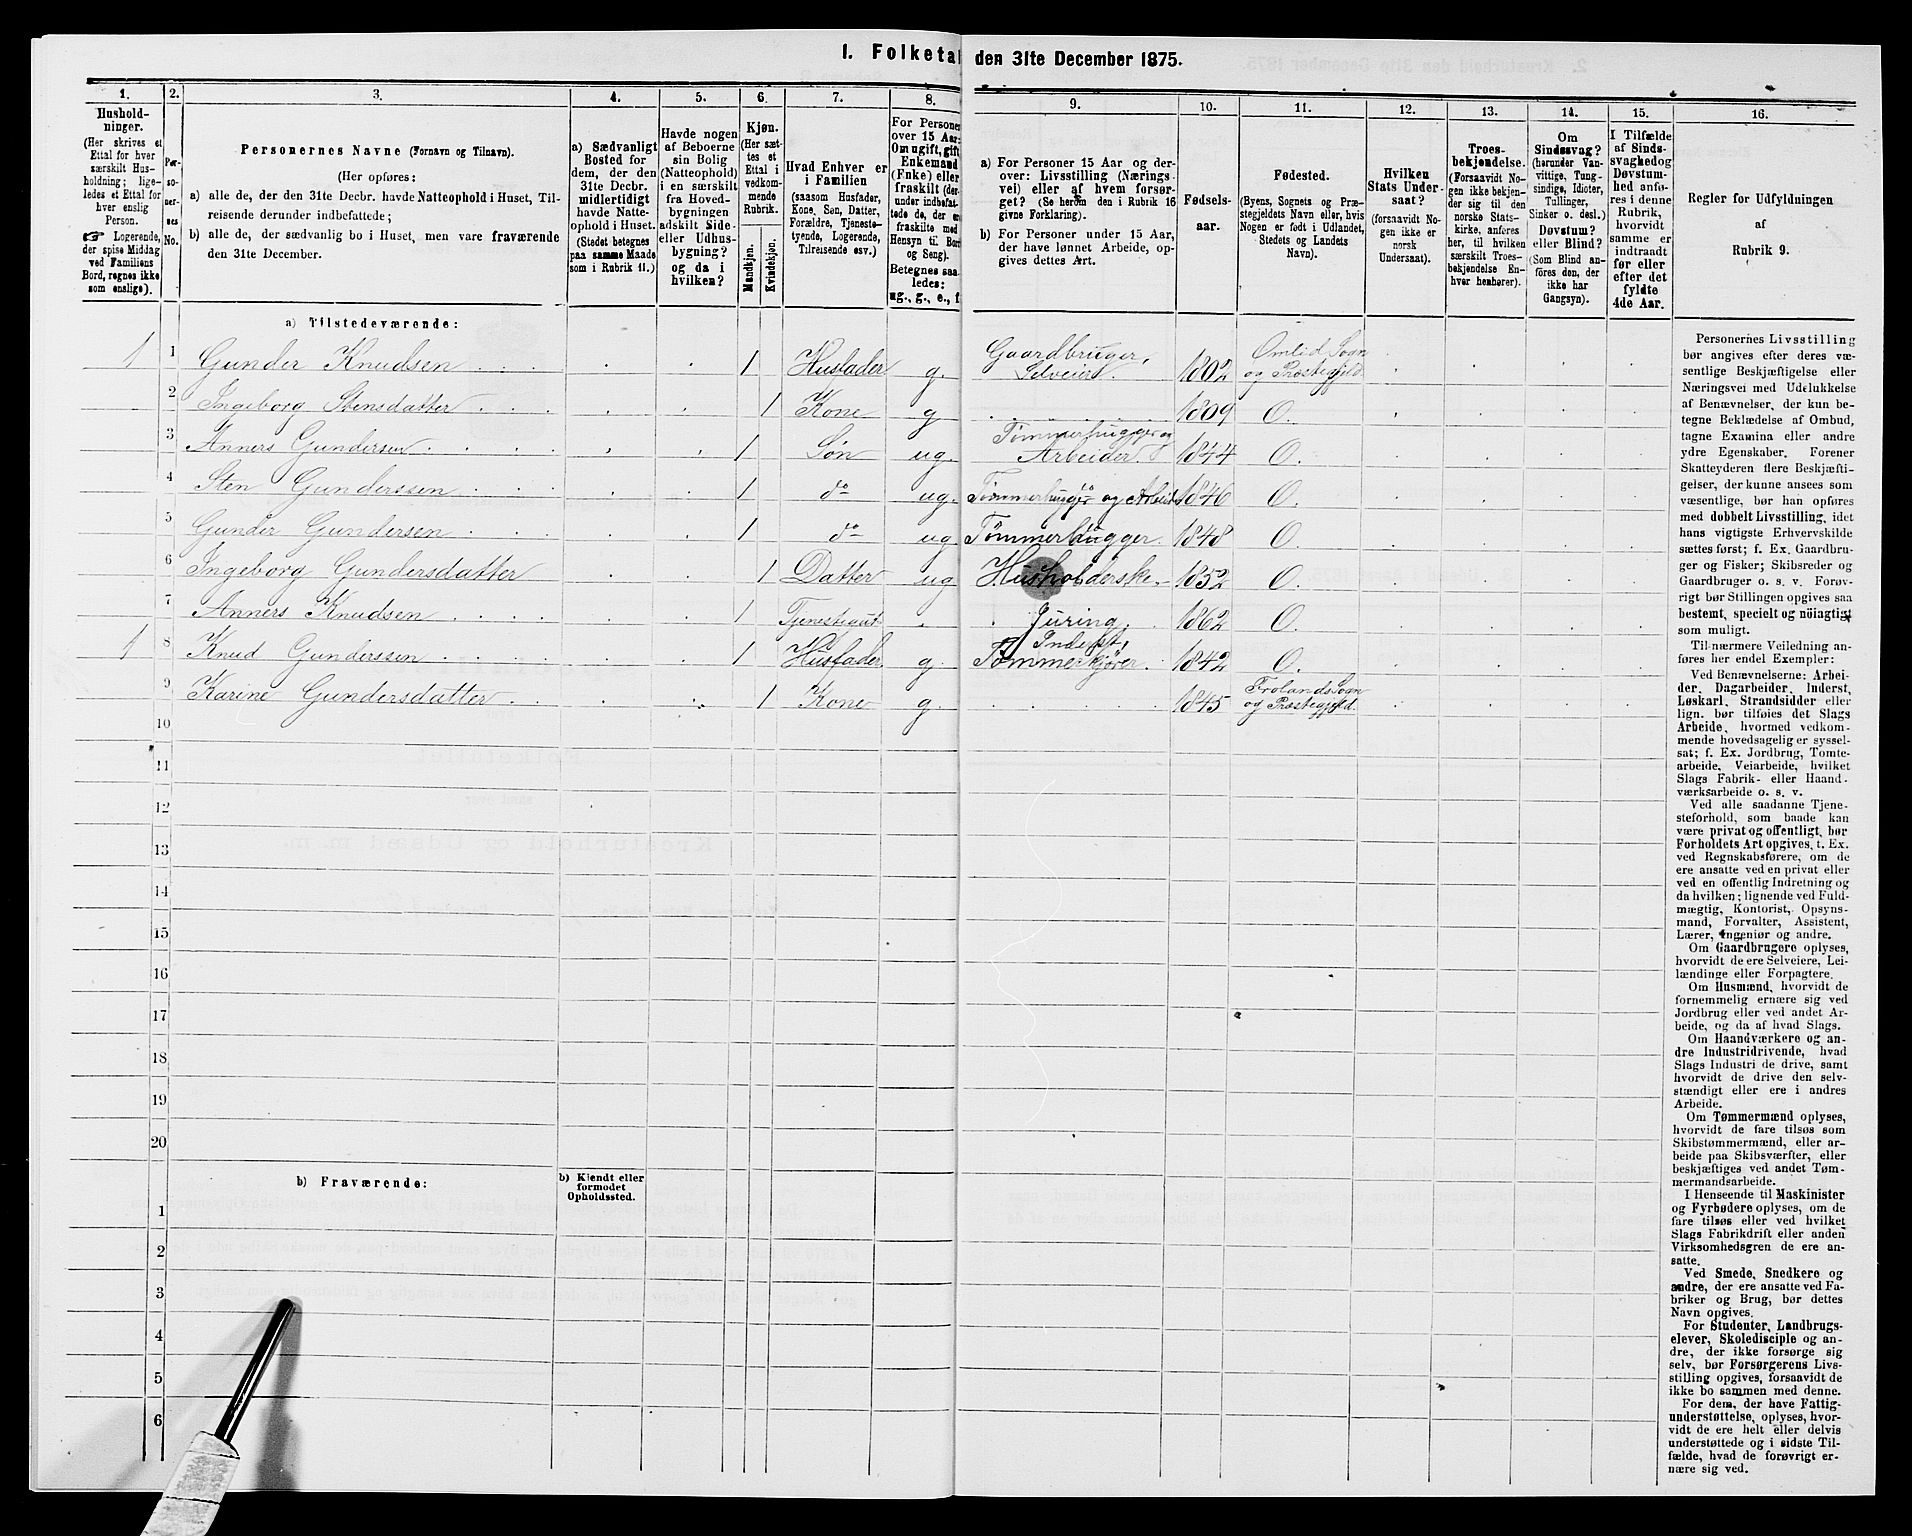 1. Folketa
den 31te December 1875.
1.
Hushold-
ninger.
(Her skrives et
Ettal for hver
særskilt Hus-
holdning; lige-
ledes et Ettal for
hver enslig
Person.
☞ Logerende,
der spise Middag
ved Familiens
Bord, regnes ikke
som enslige).
2.
Per-
so-
ner-
nes
No.
3.
Personernes Navne (Fornavn og Tilnavn).
(Her opføres:
a) alle de, der den 31te Decbr. havde Natteophold i Huset, Til-
reisende derunder indbefattede;
b) alle de, der sædvanlig bo i Huset, men vare fraværende
den 31te December.
4.
a) Sædvanligt
Bosted for
dem, der den
31te Decbr.
midlertidigt
havde Natte-
ophold i Huset.
(Stedet betegnes
paa samme Maade
som i Rubrik 11.)
5.
Havde nogen
af Beboerne
sin Bolig
(Natteophold)
i en særskilt
fra Hoved-
bygningen
adskilt Side-
eller Udhus-
bygning?
og da i
hvilken?
6.
Kjøn.
(Her sæt-
tes et
Ettal i
vedkom-
mende
Rubrik.
Mandkjøn.
Kvindekjøn.
7.
Hvad Enhver er
i Familien
(saasom Husfader,
Kone, Søn, Datter,
Forældre, Tjeneste-
tyende, Logerende,
Tilreisende osv.)
8.
For Personer
over 15 Aar:
Om ugift, gift,
Enkemand
(Enke) eller
fraskilt (der-
under indbefat-
tede de, der er
fraskilte med
Hensyn til Bord
og Seng).
Betegnes saa-
ledes:
ug., g., e., f.
9.
a) For Personer 15 Aar og der-
over: Livsstilling (Nærings-
vei) eller af hvem forsør-
get? (Se herom den i Rubrik 16
givne Forklaring).
b) For Personer under 15 Aar,
der have lønnet Arbeide, op-
gives dettes Art.
10.
Fødsels-
aar.
11.
Fødested.
(Byens, Sognets og Præ-
stegjeldets Navn eller, hvis
Nogen er født i Udlandet,
Stedets og Landets
Navn).
12.
Hvilken
Stats Under-
saat?
(forsaavidt No-
gen ikke er
norsk
Undersaat).
13.
Troes-
bekjendelse.
(Forsaavidt No-
gen ikke bekjen-
der sig til den
norske Stats-
kirke, anføres
her, til hvilken
særskilt Troes-
bekjendelse En-
hver henhører).
14.
Om
Sindssvag?
(herunder Van-
vittige, Tung-
sindige, Idioter,
Tullinger,
Sinker o. desl.)
Døvstum?
eller Blind?
(Som Blind an-
føres den, der
ikke har
Gangsyn).
15.
I Tilfælde
af Sinds-
svaghed og
Døvstum-
hed anfø-
res i denne
Rubrik,
hvorvidt
samme er
indtraadt
før eller
efter det
fyldte
4de Aar.
16.
Regler for Udfyldningen
af
Rubrik 9.
a) Tilstedeværende:
1 1 Gunder Knudsen 1 Husfader g. Gaardbruger, Selveier. 1802 Omlid Sogn og Præstegjeld
2 Ingeborg Stensdatter 1 Kone g 1809 O.
3 Anners Gundersen 1 Søn ug. Tømmerhugger og Arbeider. 1844 O.
4 Sten Gunderssen 1 do ug. Tømmerhugger og Arbeid 1846 O.
5 Gunder Gundersen 1 do ug Tømmerhugger. 1848 O.
6 Ingeborg Gundersdatter 1 Datter ug Husholderske. 1852 O.
7 Anners Knudsen 1 Tjenestegut. 1862 O.
1 8 Knud Gunderssen 1 Husfader g. Inderst, Tømmerkjører. 1842 O.
9 Karine Gundersdatter 1 Kone g. 1845 Frolands Sogn og Præstegjeld.
10
11
12
13
14
15
16
17
18
19
20
b) Fraværende:
b) Kjendt eller
formodet
Opholdssted.
1
2
3
4
5
6
Personernes Livsstilling
bør angives efter deres væ-
sentlige Beskjæftigelse eller
Næringsvei med Udelukkelse
af Benævnelser, der kun be-
tegne Beklædelse af Ombud,
tagne Examina eller andre
ydre Egenskaber. Forener
Skatteyderen flere Beskjæfti-
gelser, der kunne ansees som
væsentlige, bør han opføres
med dobbelt Livsstilling, idet
hans vigtigste Erhvervskilde
sættes først; f. Ex. Gaardbru-
ger og Fisker; Skibsreder og
Gaardbruger o. s. v. Forøv-
rigt bør Stillingen opgives saa
bestemt, specielt og nøiagtigt
som muligt.
Til nærmere Veiledning an-
føres her endel Exempler:
Ved Benævnelserne: Arbei-
der, Dagarbeider, Inderst,
Løskarl, Strandsidder eller
lign. bør tilføies det Slags
Arbeide, hvormed vedkom-
mende hovedsagelig er syssel-
sat; f. Ex. Jordbrug, Tomte-
arbeide, Veiarbeide, hvilket
Slags Fabrik- eller Haand-
værksarbeide o. s. v.
Ved alle saadanne Tjene-
steforhold, som baade kan
være privat og offentligt, bør
Forholdets Art opgives, t. Ex.
ved Regnskabsførere, om de
ere ansatte ved en privat eller
ved en offentlig Indretning og
da hvilken; lignende ved Fuld-
mægtig, Kontorist, Opsyns-
mand, Forvalter, Assistent,
Lærer, Ingeniør og andre.
Om Gaardbrugere oplyses,
hvorvidt de ere Selveiere, Lei-
lændinge eller Forpagtere.
Om Husmænd, hvorvidt de
fornemmelig ernære sig ved
Jordbrug eller ved andet Ar-
beide, og da af hvad Slags.
Om Haandværkere og an-
dre Industridrivende, hvad
Slags Industri de drive, samt
hvorvidt de drive den selv-
stændigt eller ere i andres
Arbeide.
Om Tømmermænd oplyses,
hvorvidt de fare tilsøs som
Skibstømmermænd, eller ar-
beide paa Skibsværfter, eller
beskjæftiges ved andet Tøm-
mermandsarbeide.
I Henseende til Maskinister
og Fyrbødere oplyses, om de
fare tilsøs eller ved hvilket
Slags Fabrikdrift eller anden
Virksomhedsgren de ere an-
satte.
Ved Smede, Snedkere og
andre, der ere ansatte ved Fa-
briker og Brug, bør dettes
Navn opgives.
For Studenter, Landbrugs-
elever, Skoledisciple og an-
dre, der ikke forsørge sig
selv, bør Forsørgerens Livs-
stilling opgives, forsaavidt de
ikke bo sammen med denne.
For dem, der have Fattig-
understøttelse, oplyses, hvor-
vidt de ere helt eller delvis
understøttede og i sidste Til-
fælde, hvad de forøvrigt er-
nære sig ved.